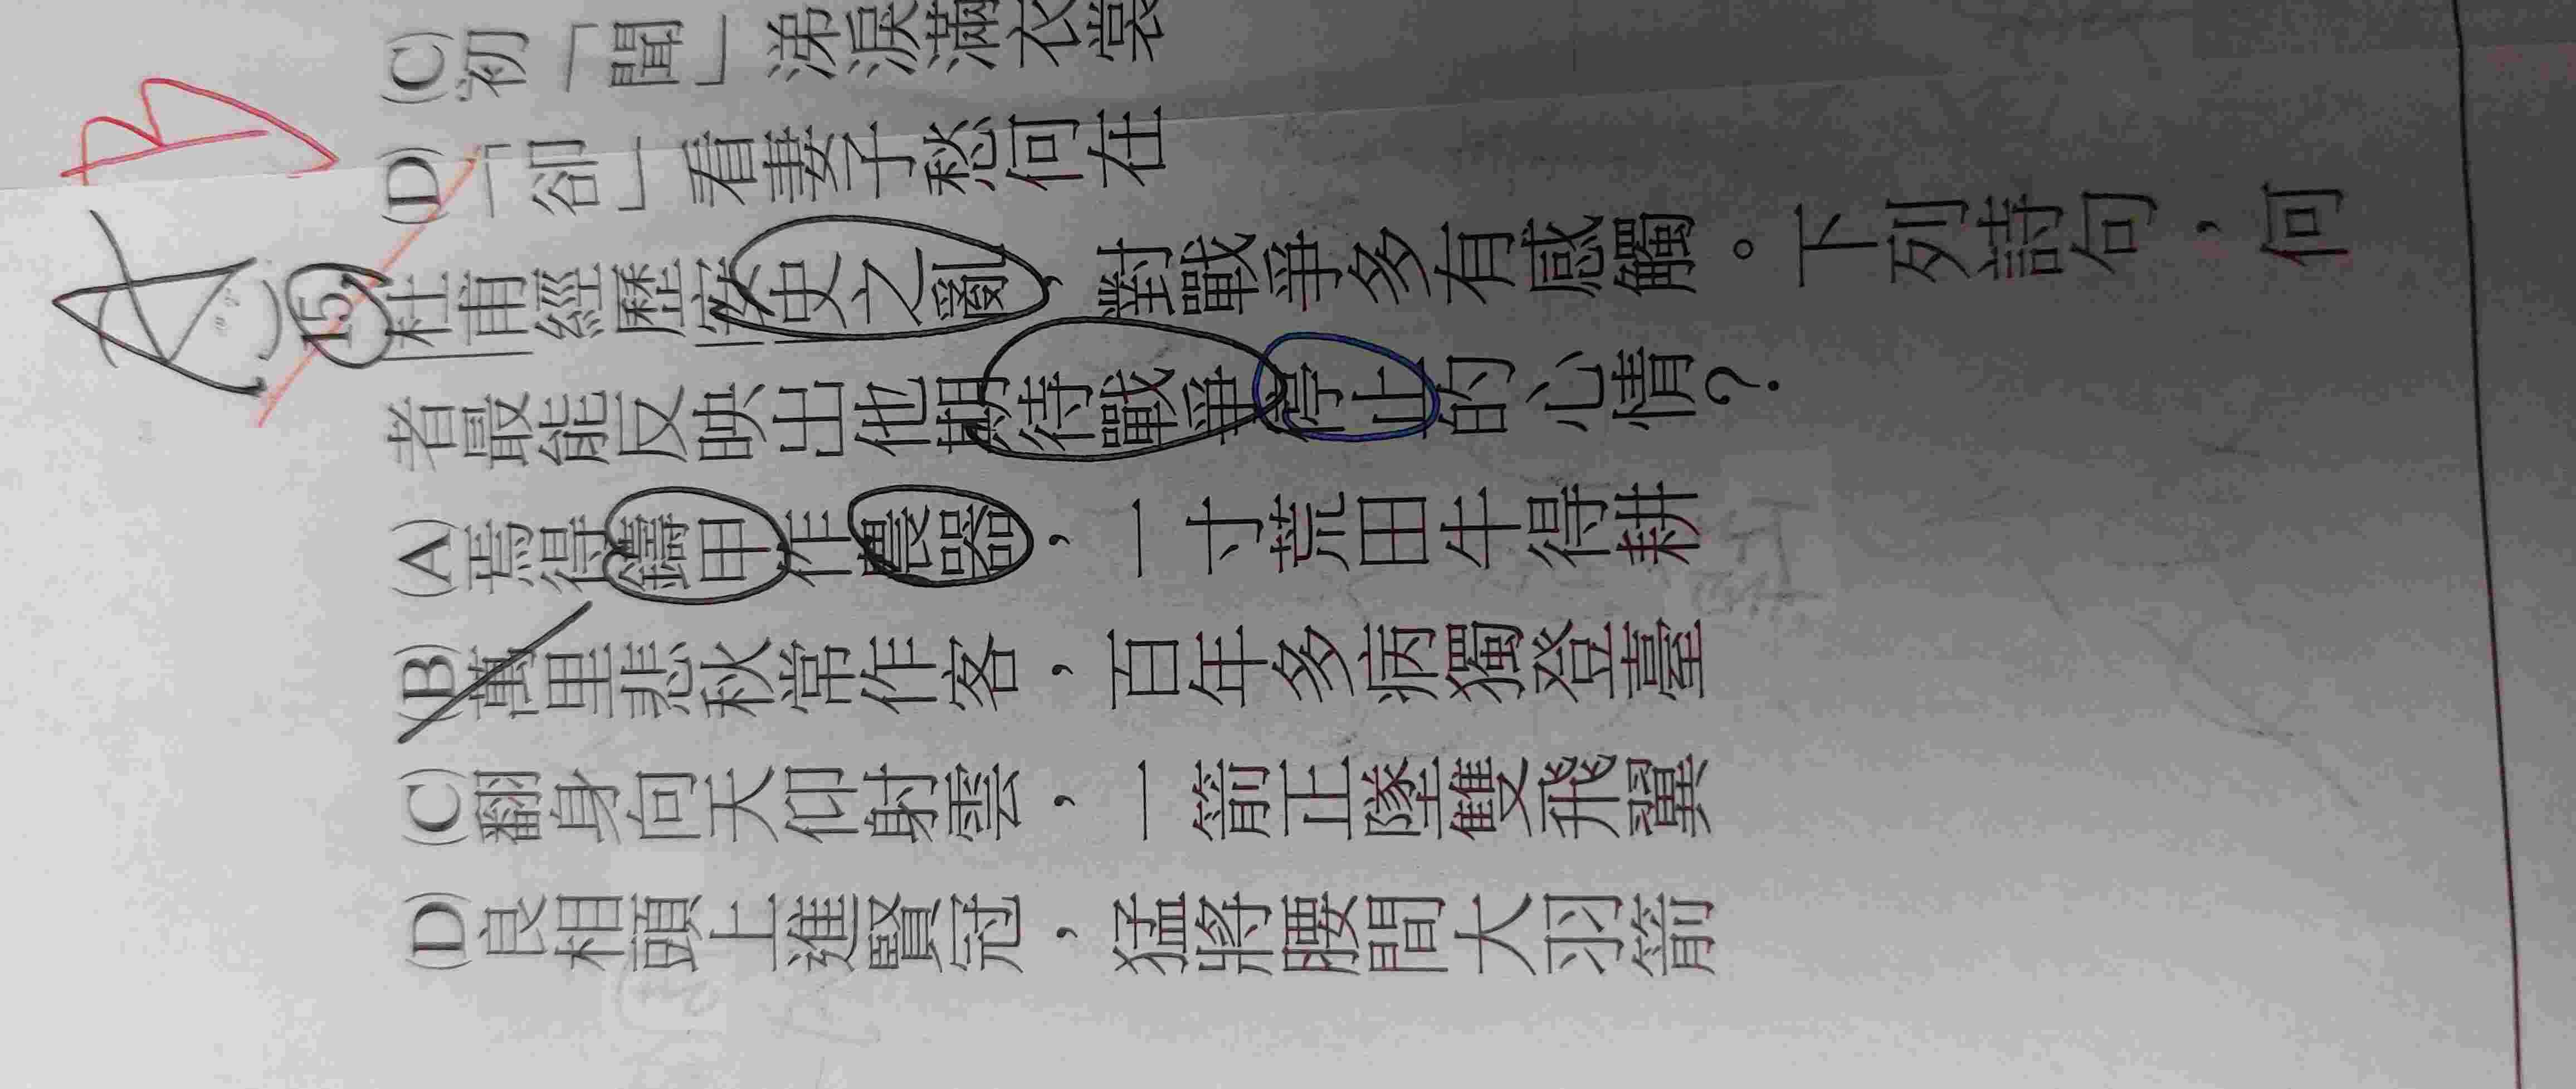 (C)初「聞」涕淚滿衣裳
(D)「卻」看妻子愁何在
15.杜甫經歷安史之亂,對戰爭多有感觸。下列詩句,何
者最能反映出他期待戰爭停止的心情?
(A)焉得鑄甲作農器,一寸荒田牛得耕
(B)萬里悲秋常作客,百年多病獨登臺
(C)翻身向天仰射雲,一箭正墜雙飛翼
(D)良相頭上進賢冠,猛將腰間大羽箭